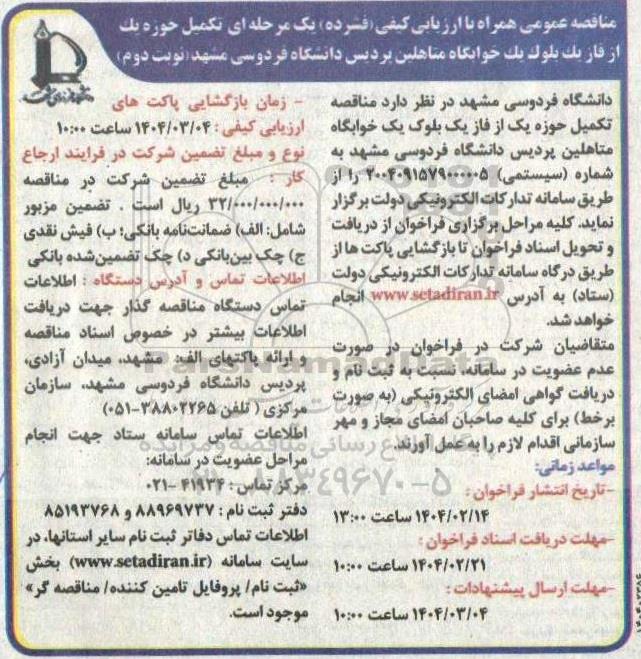 مناقصه عمومی همراه با ارزیابی کیفی (فشرده) یک مرحله ای تکمیل حوزه یک
از فاز یک بلوک یک خوابگاه متاهلین پردیس دانشگاه فردوسی مشهد (نوبت دوم)
دانشگاه فردوسی مشهد در نظر دارد مناقصه
تکمیل حوزه یک از فاز یک بلوک یک خوابگاه
متاهلین پردیس دانشگاه فردوسی مشهد به
شماره (سیستمی) ۲۰۰۴۰۹۱۵۷۹۰۰۰۰۰۵ را از
طریق سامانه تدارکات الکترونیکی دولت برگزار
نماید. کلیه مراحل برگزاری فراخوان از دریافت
و تحویل اسناد فراخوان تا بازگشایی پاکت ها از
طریق درگاه سامانه تدارکات الکترونیکی دولت
(ستاد) به آدرس www.setadiran.ir انجام
خواهد شد.
متقاضیان شرکت در فراخوان در صورت
عدم عضویت در سامانه، نسبت به ثبت نام و
دریافت گواهی امضای الکترونیکی (به صورت
برخط) برای کلیه صاحبان امضای مجاز و مهر
سازمانی اقدام لازم را به عمل آورند.
مواعد زمانی:
-تاریخ انتشار فراخوان :
۱۴۰۴/۰۲/۱۴ ساعت ۱۳:۰۰
-مهلت دریافت اسناد فراخوان :
۱۴۰۴/۰۲/۲۱ ساعت ۱۰:۰۰
-مهلت ارسال پیشنهادات :
۱۴۰۴/۰۳/۰۴ ساعت ۱۰:۰۰
- زمان بازگشایی پاکت های
ارزیابی کیفی : ۱۴۰۴/۰۳/۰۴ ساعت ۱۰:۰۰
نوع و مبلغ تضمین شرکت در فرایند ارجاع
کار : مبلغ تضمین شرکت در مناقصه
۳۲/۰۰۰/۰۰۰/۰۰۰ ریال است . تضمین مزبور
شامل: الف) ضمانت‌نامه بانکی؛ ب) فیش نقدی
ج) چک بین‌بانکی د) چک تضمین‌شده بانکی
اطلاعات تماس و آدرس دستگاه : اطلاعات
تماس دستگاه مناقصه گذار جهت دریافت
اطلاعات بیشتر در خصوص اسناد مناقصه
و ارائه پاکتهای الف: مشهد، میدان آزادی،
پردیس دانشگاه فردوسی مشهد، سازمان
مرکزی ( تلفن ۳۸۸۰۲۲۶۵-۰۵۱)
اطلاعات تماس سامانه ستاد جهت انجام
مراحل عضویت در سامانه:
مرکز تماس : ۴۱۹۳۴ -۰۲۱
دفتر ثبت نام : ۸۸۹۶۹۷۳۷ و ۸۵۱۹۳۷۶۸
اطلاعات تماس دفاتر ثبت نام سایر استانها، در
سایت سامانه (www.setadiran.ir) بخش
«ثبت نام/ پروفایل تامین کننده/ مناقصه گر»
موجود است.
ParsNamadData
۸۸۳۴۹۶۷۰-۵